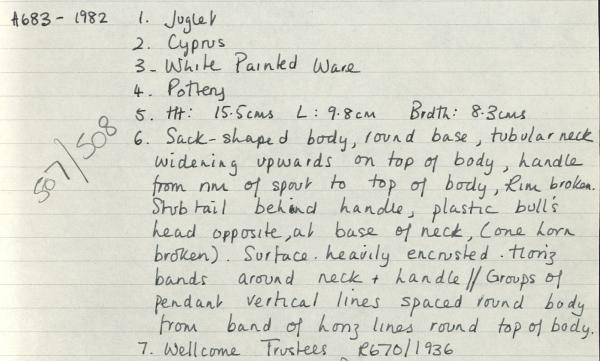 A683-1982 1. Juglet
2. Cyprus
3- White Painted Ware
4. Pottery
5. Ht: 15.5cms L: 9.8cm Brdth: 8.3cms
507/508
6. Sack-shaped body, round base, tubular neck
widening upwards on top of body, handle
from rim of spout to top of body, Rim broken.
Stub tail behind handle, plastic bull's
head opposite, at base of neck, (one horn
broken). Surface heavily encrusted. Horiz
bands around neck + handle // Groups of
pendant vertical lines spaced round body
from band of horiz lines round top of body.
7. Wellcome Trustees R670/1936